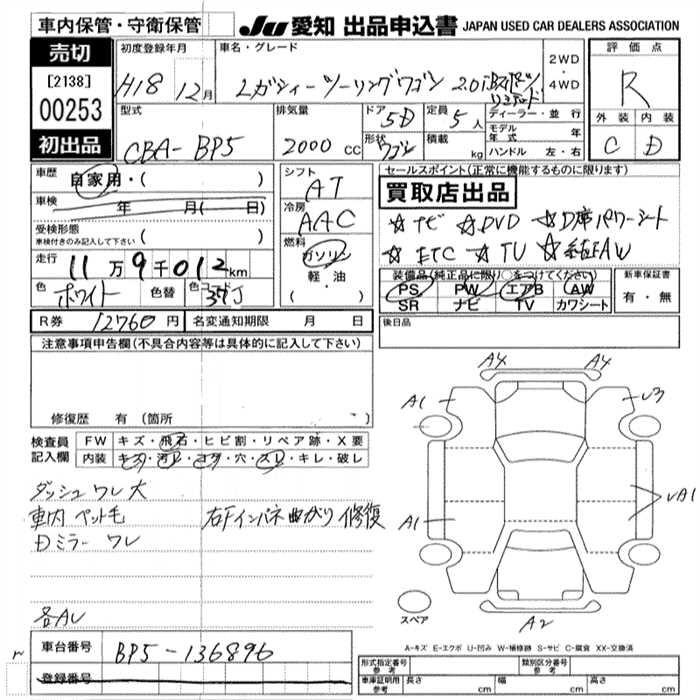 車内保管・守衛保管
JU 愛知 出品申込書 JAPAN USED CAR DEALERS ASSOCIATION
売切
[2138]
00253
初出品
初度登録年月
H18 12月
車名・グレード
レガシィーツーリングワゴン 2.0i
2WD
・
4WD
評価点
R
外装 内装
C D
型式
CBA-BP5
排気量
2000 cc
ドア
5D
形状
ワゴン
定員
5人
積載
kg
ディーラー・並行
モデル年式 年
ハンドル 左・右
車歴
自家用・( )
車検
年 月( 日)
受検形態
車検付きのみ記入して下さい( )
走行
11万9千012km
色
ホワイト
色替
色コード
37J
シフト
AT
冷房
AAC
燃料
ガソリン
軽・油
( )
セールスポイント(正常に機能するものに限ります)
買取店出品
☆ナビ ☆DVD ☆D席パワーシート
☆ETC ☆TV ☆純正AW
装備品(純正品に限り○をつけてください)
PS PW エアB AW
SR ナビ TV カワシート
新車保証書
有・無
R券 12760円
名変通知期限 月 日
後日品
注意事項申告欄(不具合内容等は具体的に記入して下さい)
修復歴 有 (箇所 )
検査員
記入欄
FW キズ・飛石・ヒビ割・リペア跡・X要
内装 キズ・汚レ・コゲ・穴・スレ・キレ・破レ
ダッシュワレ大
車内ペット毛 右Fインパネ曲がり修復
Dミラーワレ
各AU
A4 A4
A1 U3
A1 UA1
スペア
A2
A-キズ E-エクボ U-凹み W-補修跡 S-サビ C-腐食 XX-交換済
車台番号
BP5-136896
登録番号
形式指定番号
参考
類別区分番号
参考
車庫証明用
参考
長さ cm 幅 cm 高さ cm